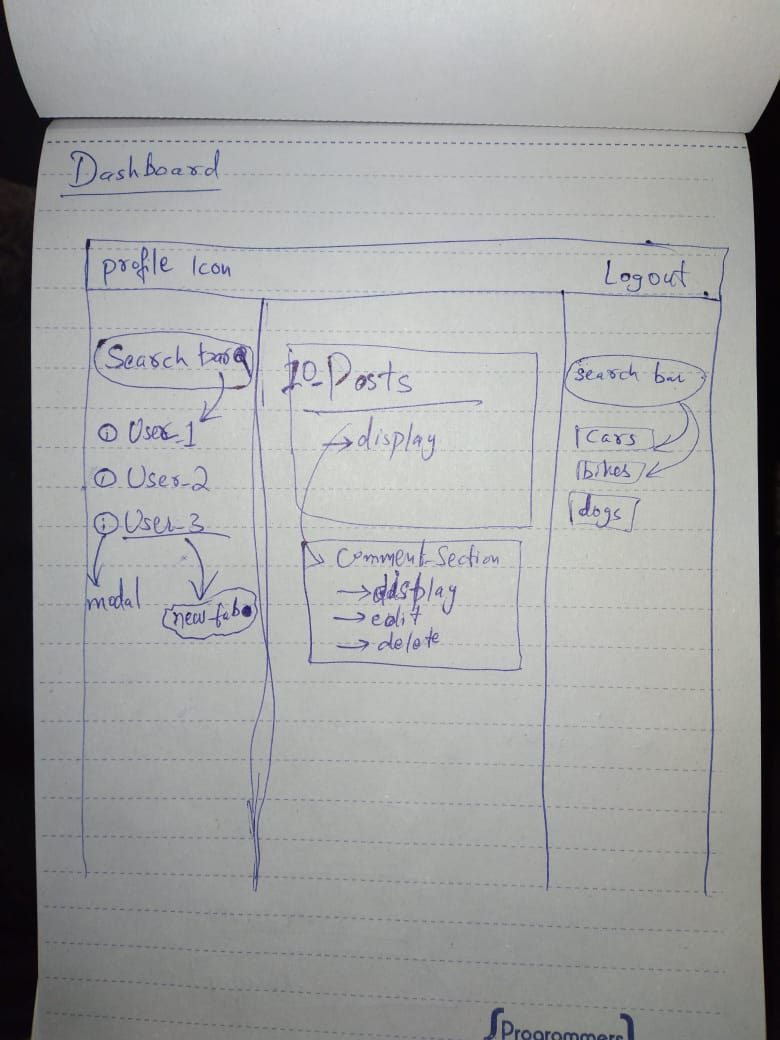 Dashboard
profile Icon
Logout
Search bar
① User-1
① User-2
① User-3
modal
new-tab
10-Posts
→display
Comment-Section
→display
→edit
→delete
search bar
cars
bikes
dogs
Programmers